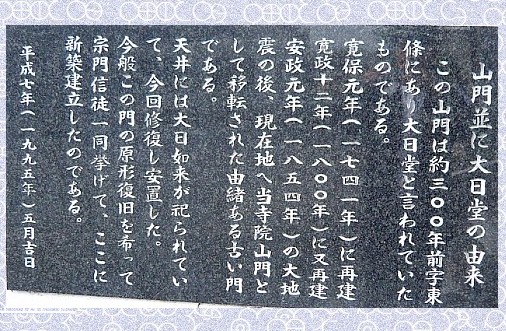 山門並に大日堂の由来
この山門は約三〇〇年前字東
條にあり大日堂と言われていた
ものである。
寛保元年(一七四一年)に再建
寛政十二年(一八〇〇年)に又再建
安政元年(一八五四年)の大地
震の後、現在地へ当寺院山門と
して移転された由緒ある古い門
である。
天井には大日如来が祀られてい
て、今回修復し安置した。
今般この門の原形復旧を希って
宗門信徒一同挙げて、ここに
新築建立したのである。
平成七年(一九九五年)五月吉日